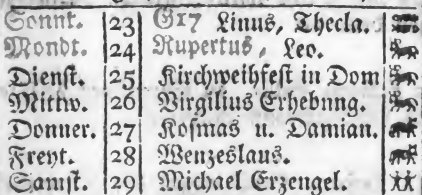 Sonnt. 23 G17 Linus, Thecla.
Mondt. 24 Rupertus, Leo.
Dienst. 25 Kirchweihfest in Dom
Mittw. 26 Virgilius Erhebung.
Donner. 27 Kosmas u. Damian.
Freyt. 28 Wenzeslaus.
Samst. 29 Michael Erzengel.